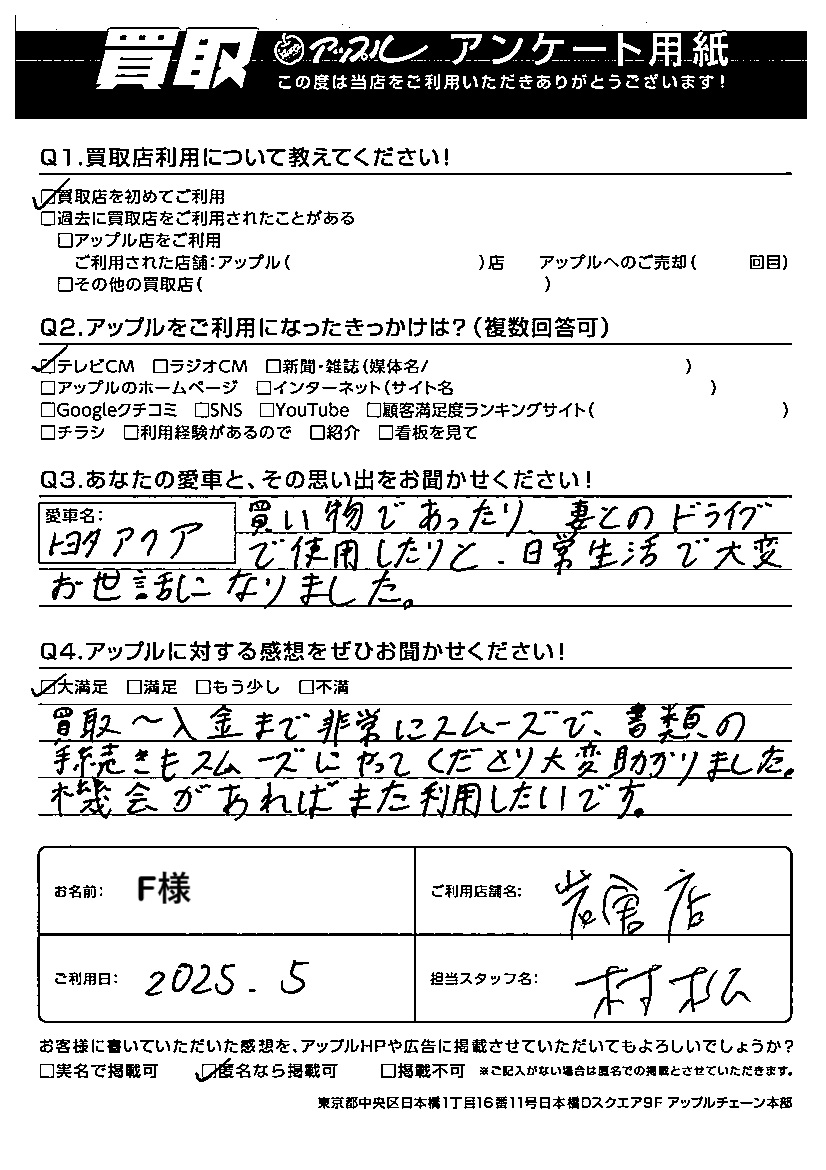 買取 アップル アンケート用紙
この度は当店をご利用いただきありがとうございます！
Q1.買取店利用について教えてください！
☑買取店を初めてご利用
□過去に買取店をご利用されたことがある
□アップル店をご利用
ご利用された店舗：アップル（　）店　アップルへのご売却（　回目）
□その他の買取店（　）
Q2.アップルをご利用になったきっかけは？（複数回答可）
☑テレビCM □ラジオCM □新聞・雑誌（媒体名/　）
□アップルのホームページ □インターネット（サイト名　）
□Googleクチコミ □SNS □YouTube □顧客満足度ランキングサイト（　）
□チラシ □利用経験があるので □紹介 □看板を見て
Q3.あなたの愛車と、その思い出をお聞かせください！
愛車名：
トヨタ アクア
買い物であったり、妻とのドライブ
で使用したりと、日常生活で大変
お世話になりました。
Q4.アップルに対する感想をぜひお聞かせください！
☑大満足 □満足 □もう少し □不満
買取〜入金まで非常にスムーズで、書類の
手続きもスムーズにやってくださり大変助かりました。
機会があればまた利用したいです。
お名前： F様
ご利用店舗名： 岩倉店
ご利用日： 2025.5
担当スタッフ名： 村松
お客様に書いていただいた感想を、アップルHPや広告に掲載させていただいてもよろしいでしょうか？
□実名で掲載可 ☑匿名なら掲載可 □掲載不可 ※ご記入がない場合は匿名での掲載とさせていただきます。
東京都中央区日本橋1丁目16番11号日本橋Dスクエア9F アップルチェーン本部